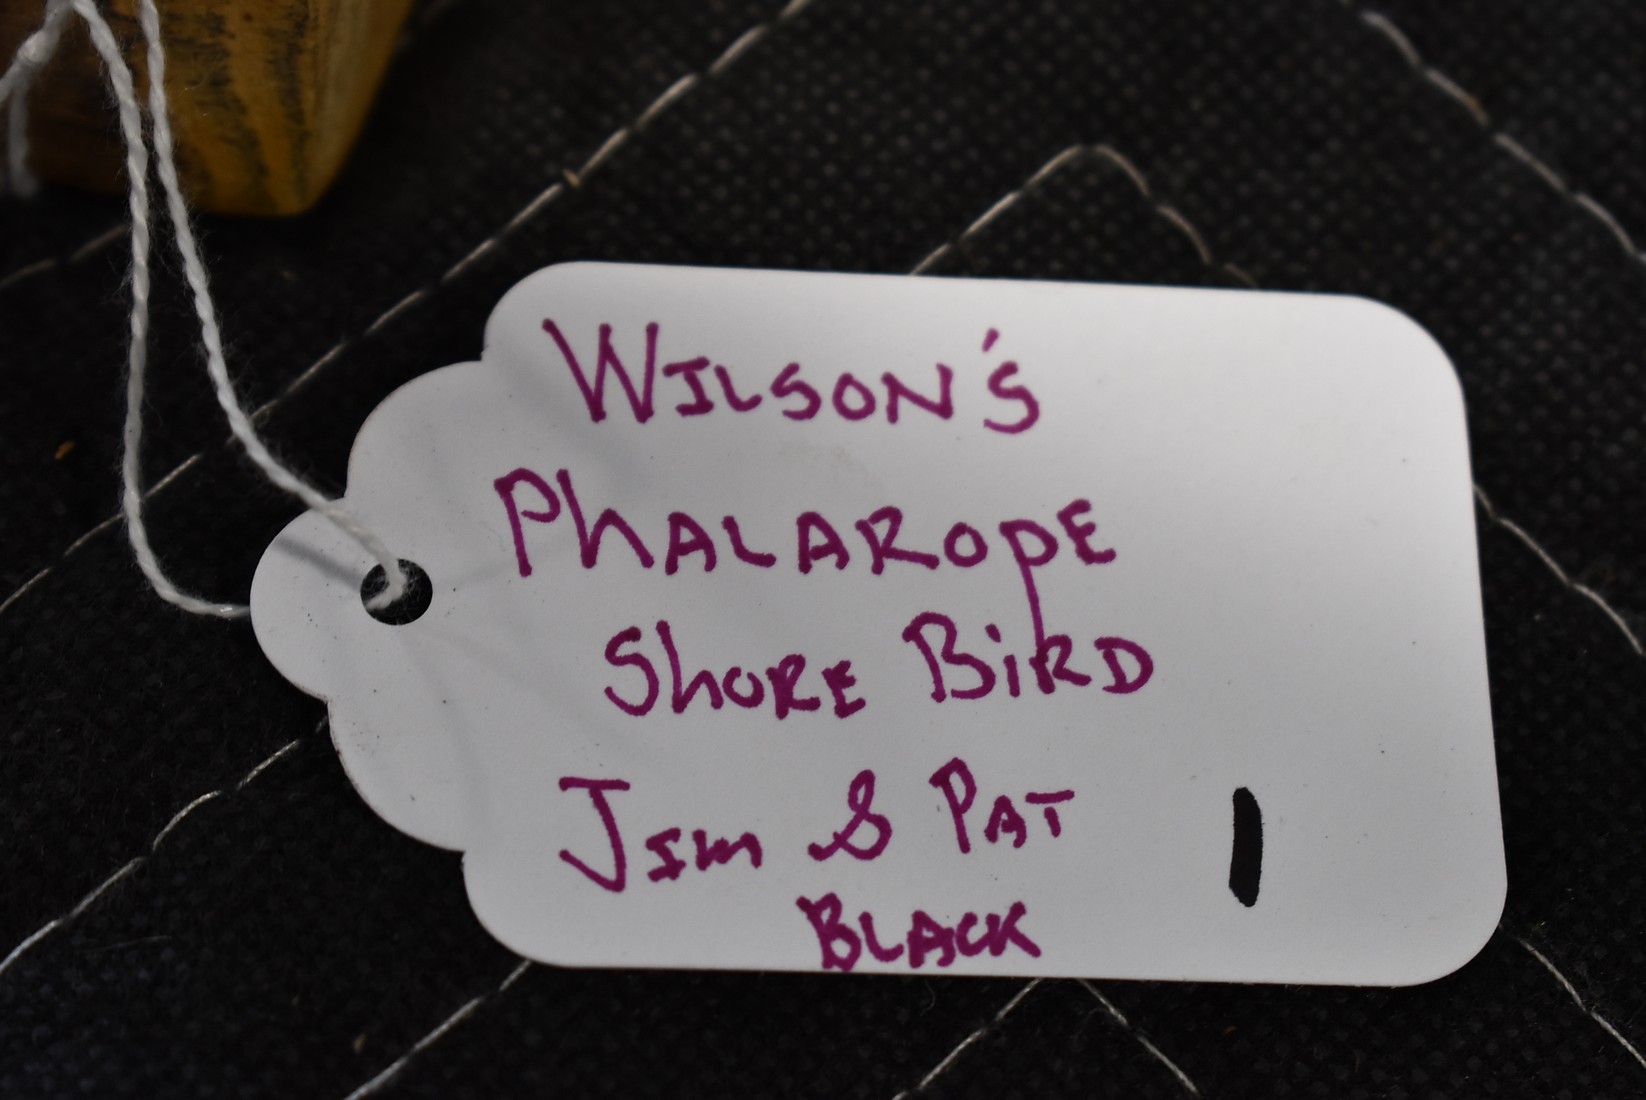 Wilson's
Phalarope
Shore Bird
Jim & Pat 1
Black